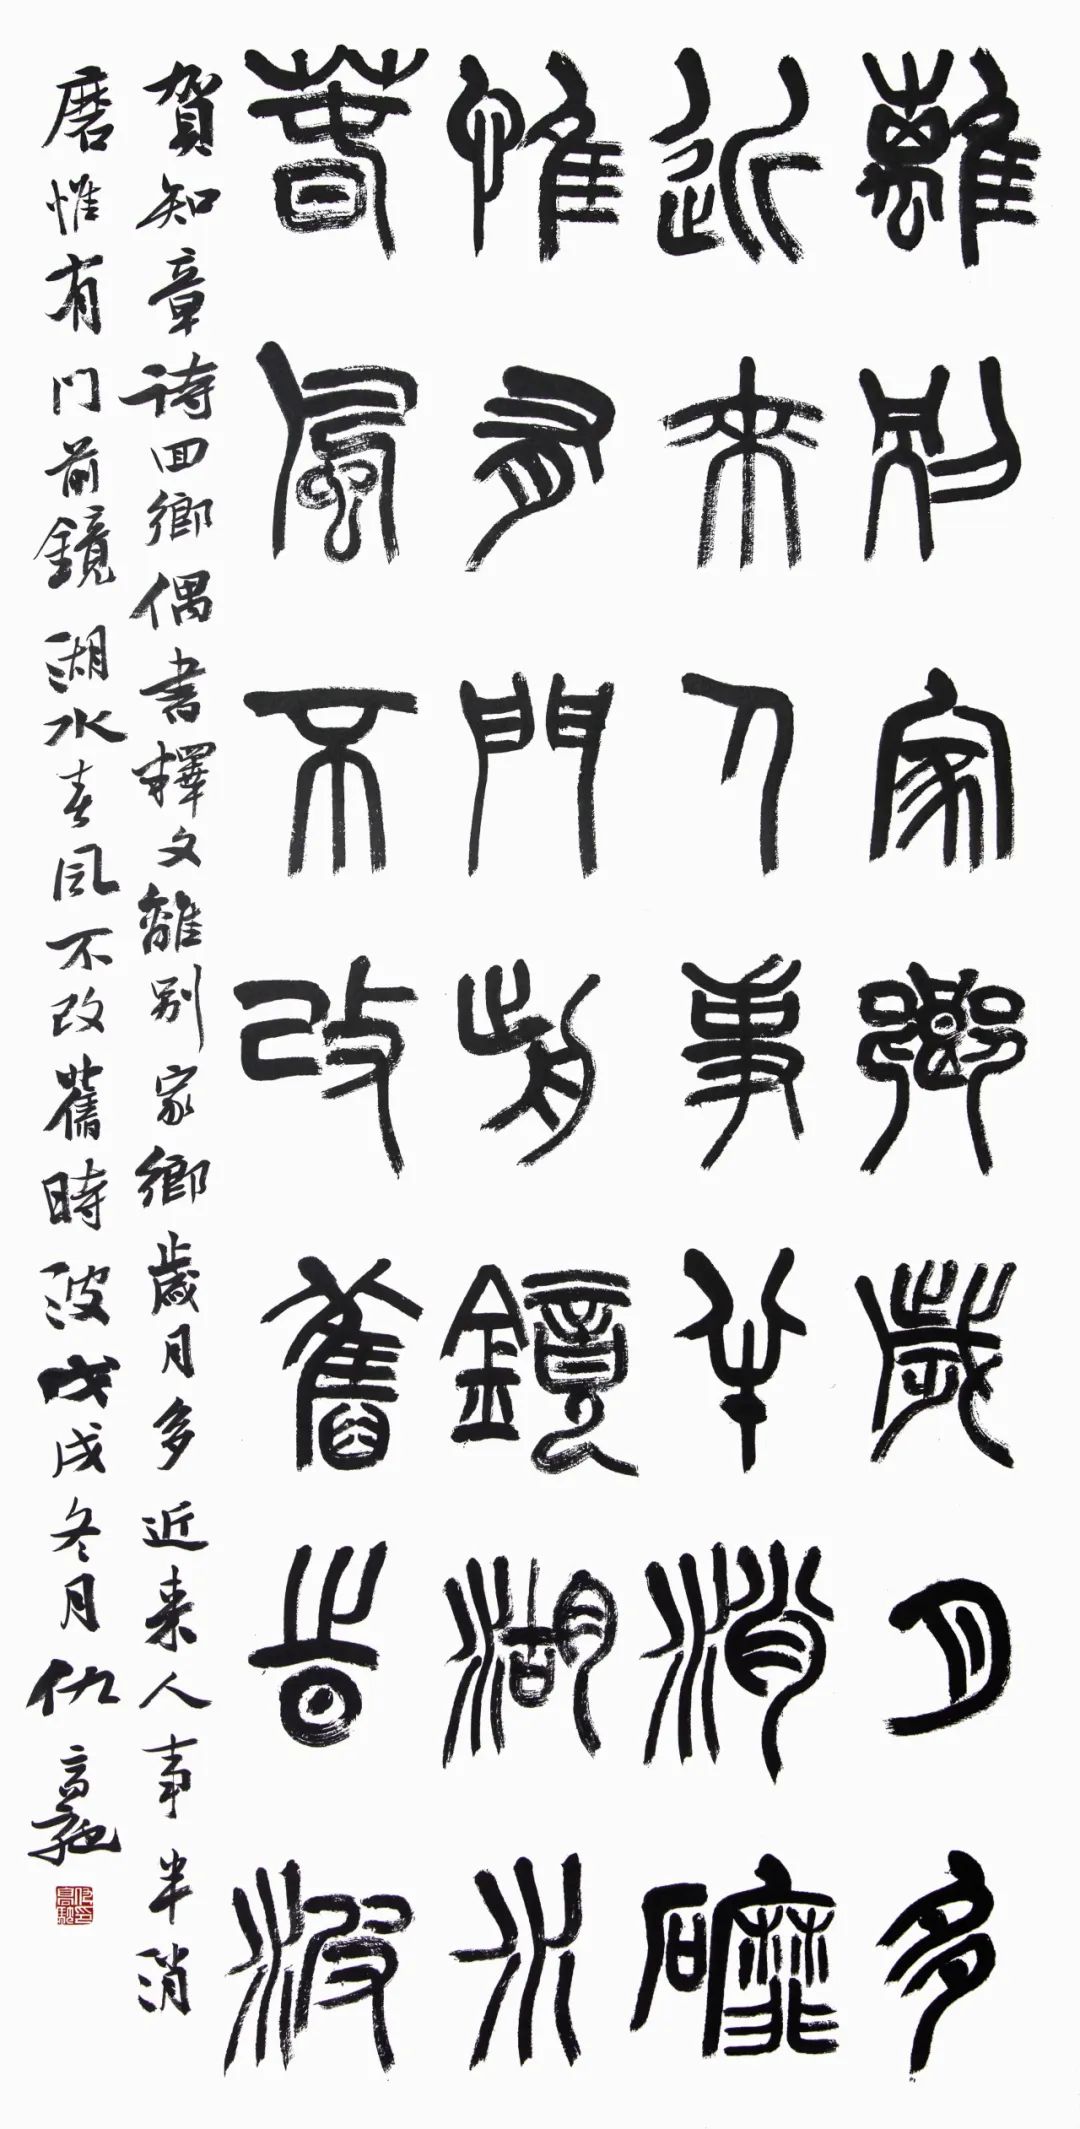 離別家鄉歲月多
近来人事半消磨
惟有門前鏡湖水
春風不改舊時波
賀知章诗回鄉偶書釋文離别家鄉歲月多近来人事半消
磨惟有门前鏡湖水春风不改舊時波戊戌冬月仇高驰